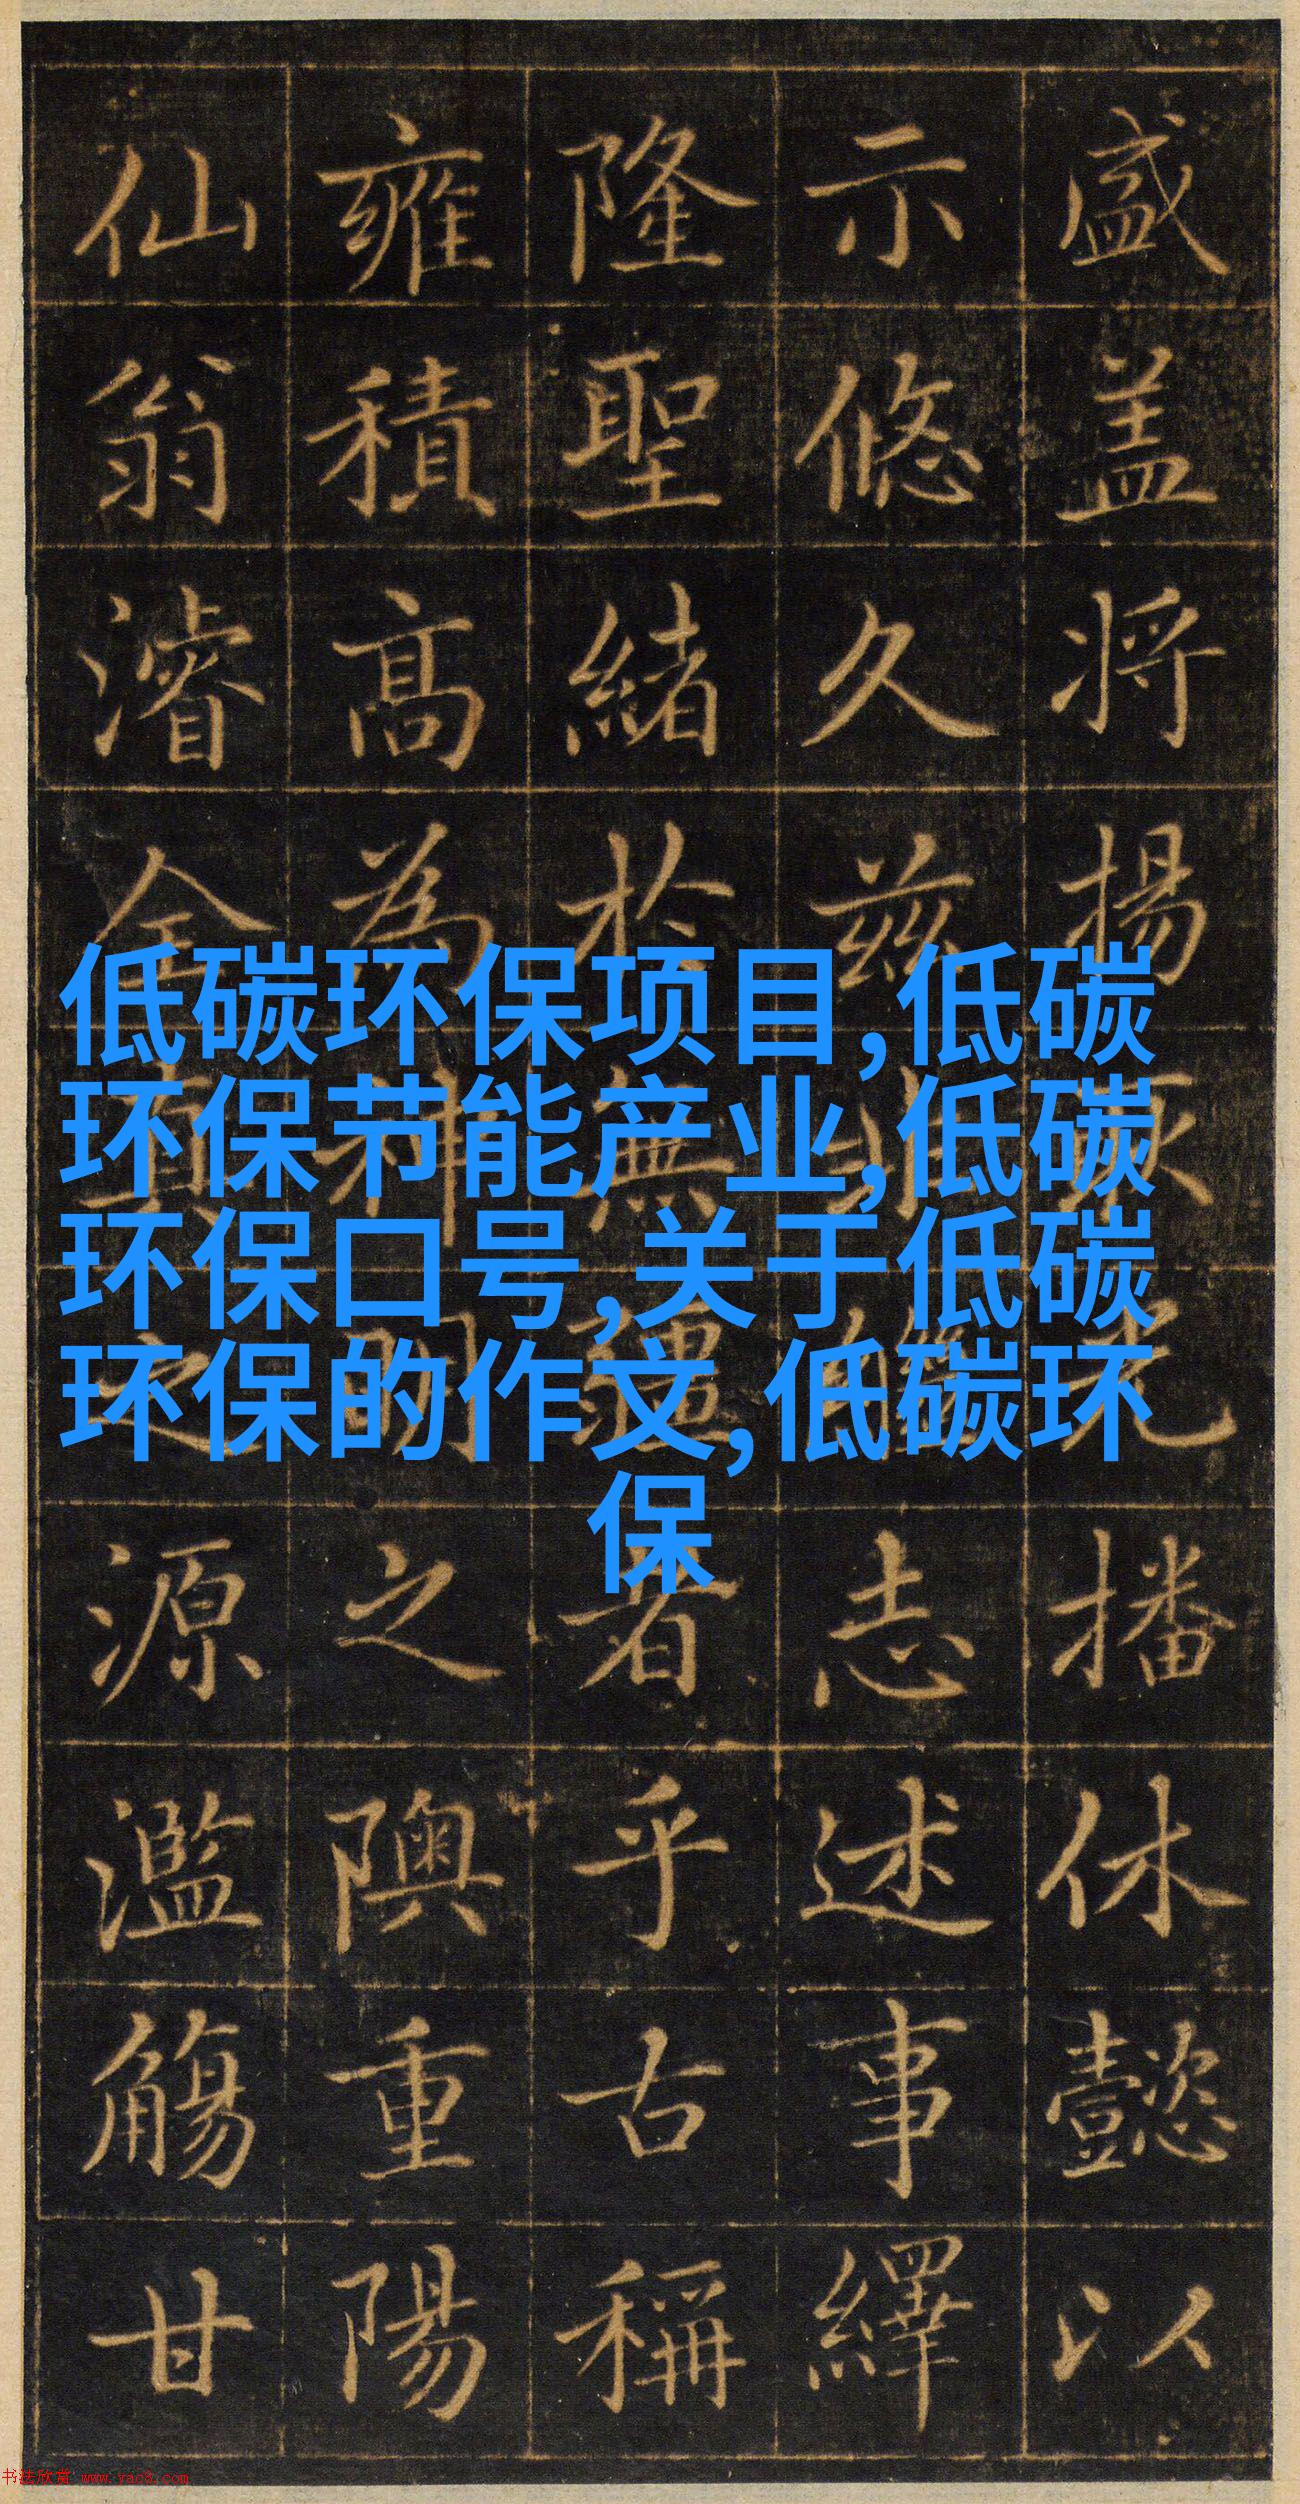 盛盖将揚厥光播休懿以
示悠久兹非繼志述事繹
隆聖緒於無疆者乎古稱
雍積高為神明之隩重陽
仙翁濬全真之源濫觴甘
低碳环保项目,低碳
环保节能产业,低碳
环保口号,关于低碳
环保的作文,低碳环
保
书法欣赏 www.yac8.com